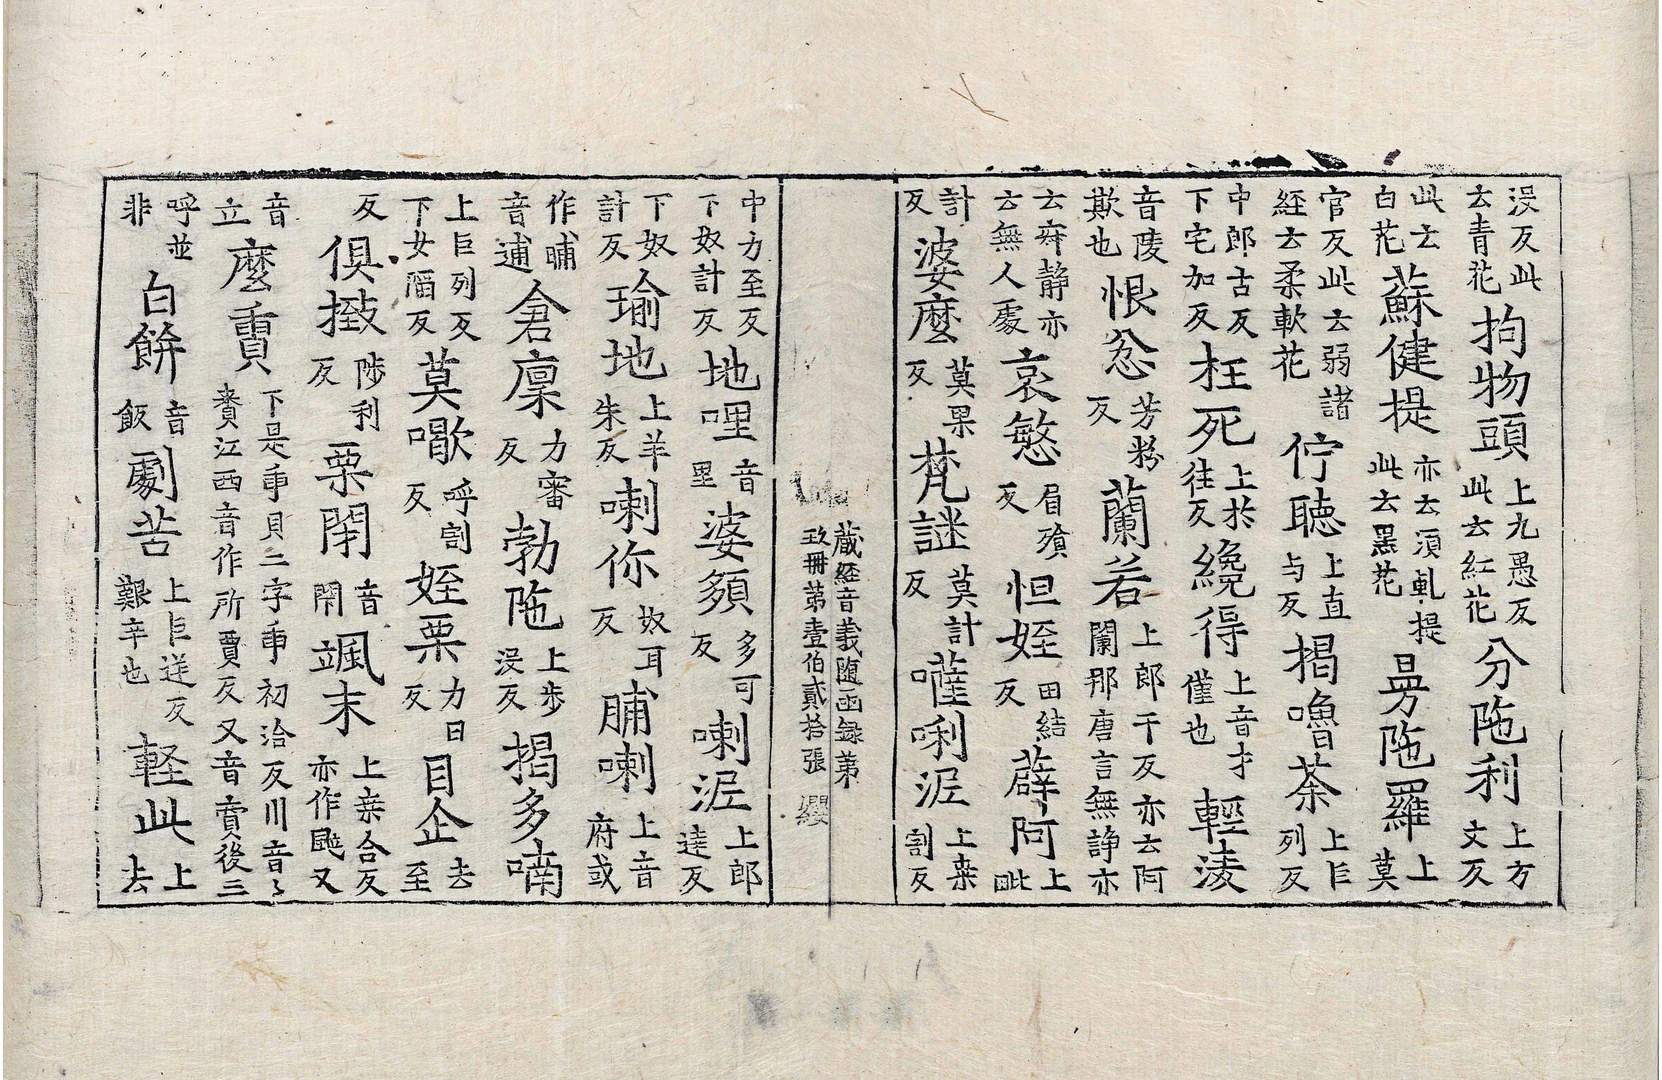 沒反此云青花拘物頭上九愚反此云紅花分陁利上方文反
此云白花蘇健提亦云湏軋提此云黑花曼陁羅上莫
官反此云弱諸經云柔軟花佇聽上直与反揭嚕荼上巨列反
中郎古反下宅加反枉死上於往反纔得上音才僅也輕淩
音陵欺也恨忿芳粉反蘭若上郎干反亦云阿闌那唐言無諍亦
云寂静亦云無人處哀慜眉殞反怛姪田結反薜阿上毗
計反婆麼莫果反梵謎莫計反𡄳唎泥上桒割反
藏經音義随函録苐
玖冊苐壹伯貳拾張
中力至反下奴計反地哩音里婆䫂多可反喇泥上郎達反
下奴計反瑜地上羊朱反喇你奴耳反脯喇上音府或
作晡音逋倉廩力審反勃陁上步沒反揭多喃
上巨列反下女反莫呼割反姪栗力日反目企去至
反俱㨖陟利反栗閇音閉颯末上桒合反亦作䬃又
音立麼賷下是二字初洽反川音〻賷江西音作所賈反又音賣後三
呼並非白餅音飯劇苦上巨逆反艱辛也軽此上去